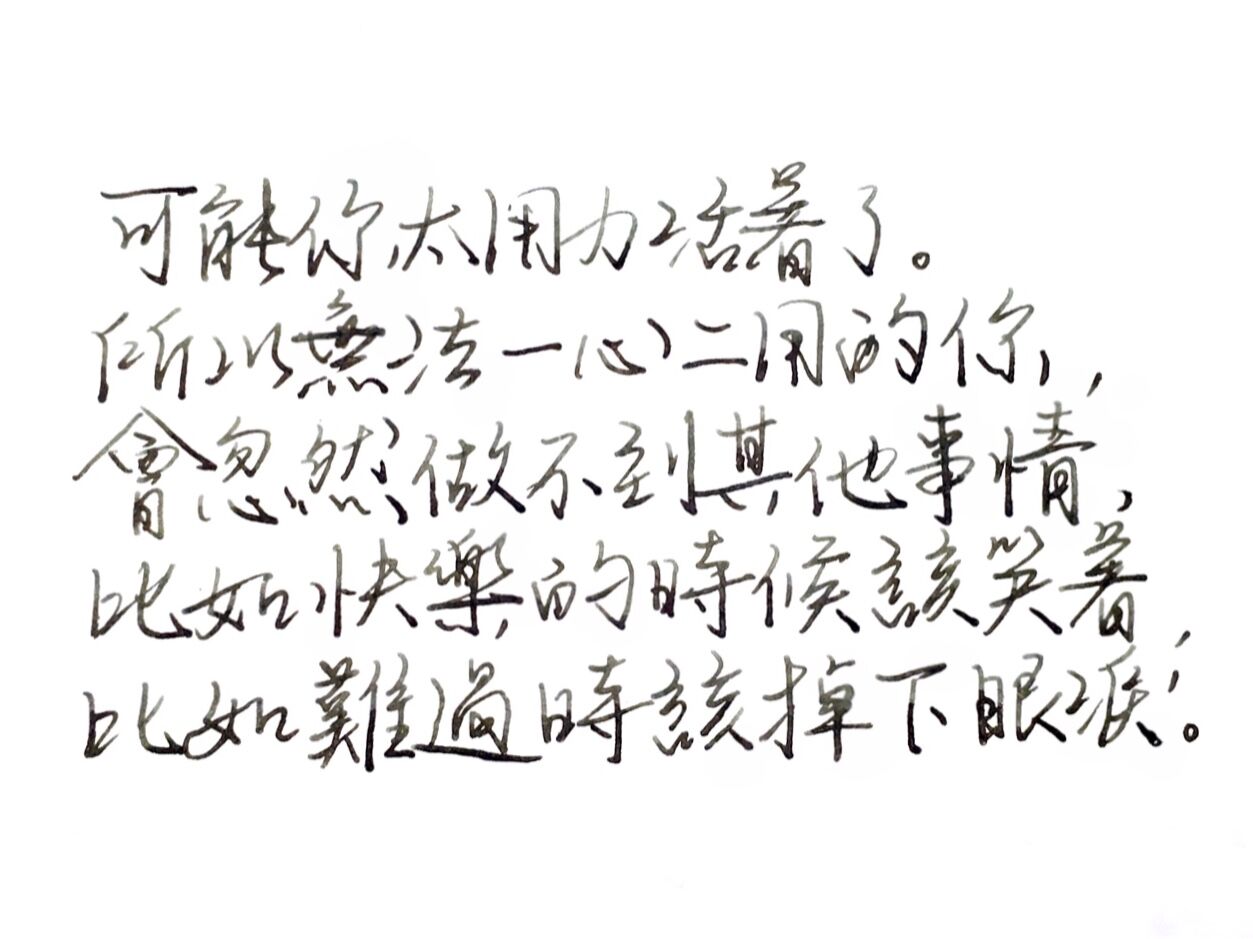 可能你太用力活著了。
所以無法一心二用的你，
會忽然做不到其他事情，
比如快樂的時候該笑著，
比如難過時該掉下眼淚。